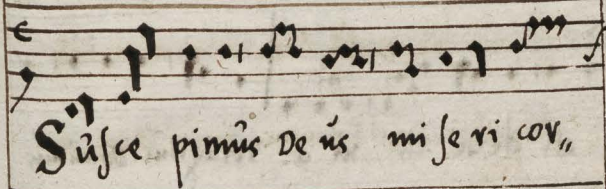 Sûsce pimûs De ûs mi se ri cor„